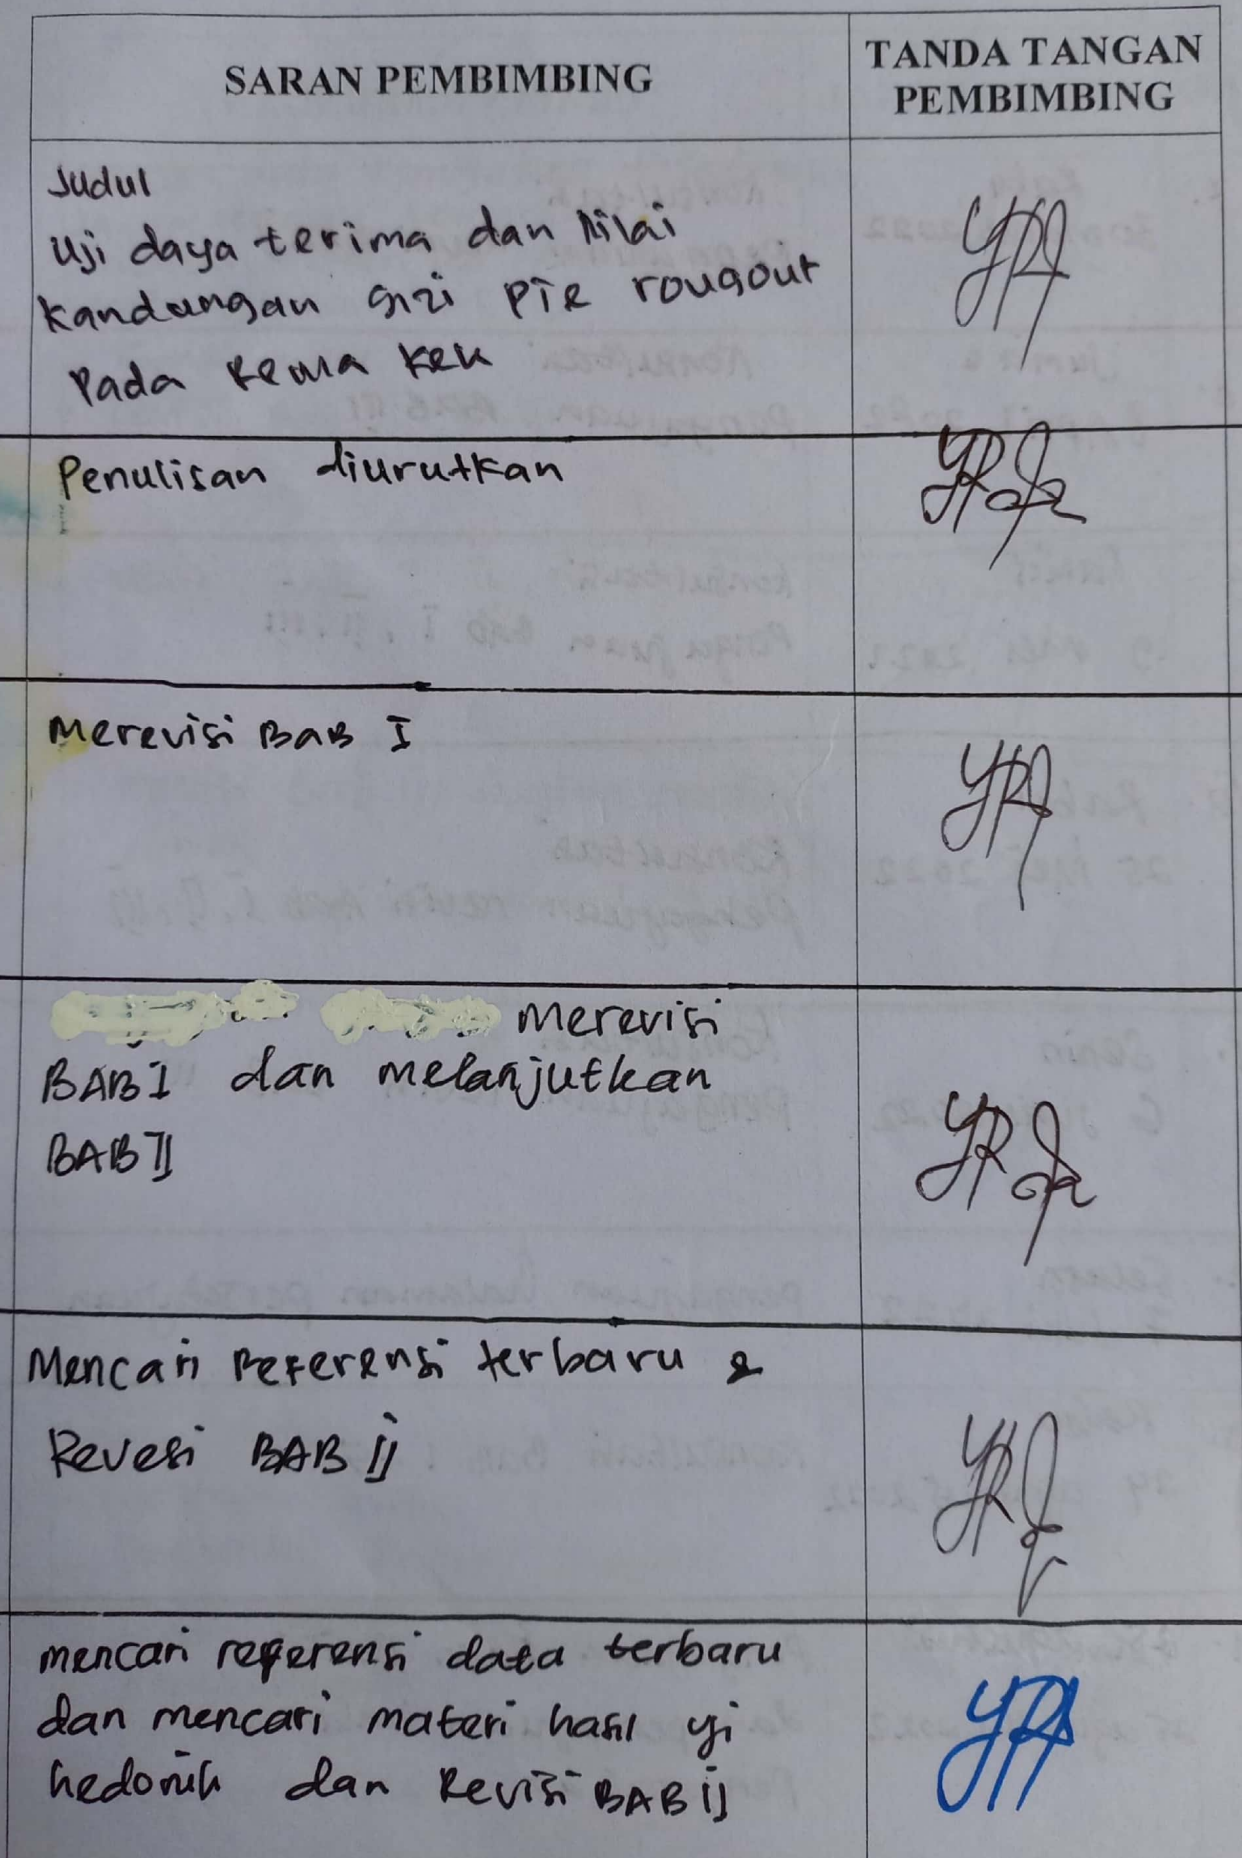 SARAN PEMBIMBING
TANDA TANGAN
PEMBIMBING
Judul
Uji daya terima dan Nilai
kandungan gizi PIE rougout
Pada Rema KEK
Penulisan diurutkan
Merevisi BAB I
Merevisi
BAB I dan melanjutkan
BAB II
Mencari Referensi terbaru &
Revesi BAB II
mencari referensi data terbaru
dan mencari materi hasil uji
hedonik dan Revisi BAB II